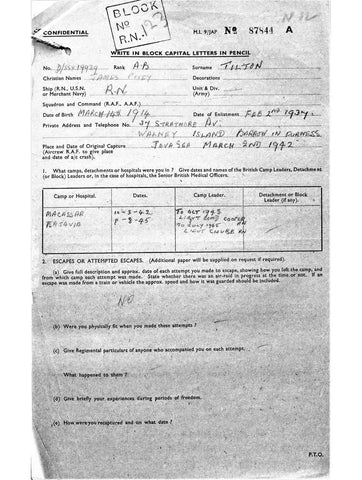 BLOCK
No 122
R.N.
CONFIDENTIAL
M.I. 9/JAP No 87844 A
WRITE IN BLOCK CAPITAL LETTERS IN PENCIL
No. Rank AB Surname TILTON
Christian Names JAMES Decorations
Ship (R.N., U.S.N. or Merchant Navy) R.N Unit & Div. (Army)
Squadron and Command (R.A.F., A.A.F.)
Date of Birth MARCH 14th 1914 Date of Enlistment FEB 2nd 1937
Private Address and Telephone No. 37 STRATMORE AV.
WALNEY ISLAND BARROW IN FURNESS
Place and Date of Original Capture JAVA SEA MARCH 2ND 1942
(Aircrew R.A.F. to give place and date of a/c crash).
1. What camps, detachments or hospitals were you in? Give dates and names of the British Camp Leaders, Detachment or (Block) Leaders, or in the case of hospitals, the Senior British Medical Officers.
Camp or Hospital. Dates. Camp Leader. Detachment or Block Leader (if any).
MACASSAR 10-3-42 TO OCT 1943
LIEUT COOPER RN
BATAVIA -8-45 TO JULY 1945
LIEUT RN
2. ESCAPES OR ATTEMPTED ESCAPES. (Additional paper will be supplied on request if required).
(a) Give full description and approx. date of each attempt you made to escape, showing how you left the camp, and from which camp each attempt was made. State whether there was an air-raid in progress at the time or not. If an escape was made from a train or vehicle the approx. speed and how it was guarded should be included.
NO
(b) Were you physically fit when you made these attempts?
(c) Give Regimental particulars of anyone who accompanied you on each attempt.
What happened to them?
(d) Give briefly your experiences during periods of freedom.
(e) How were you recaptured and on what date?
P.T.O.